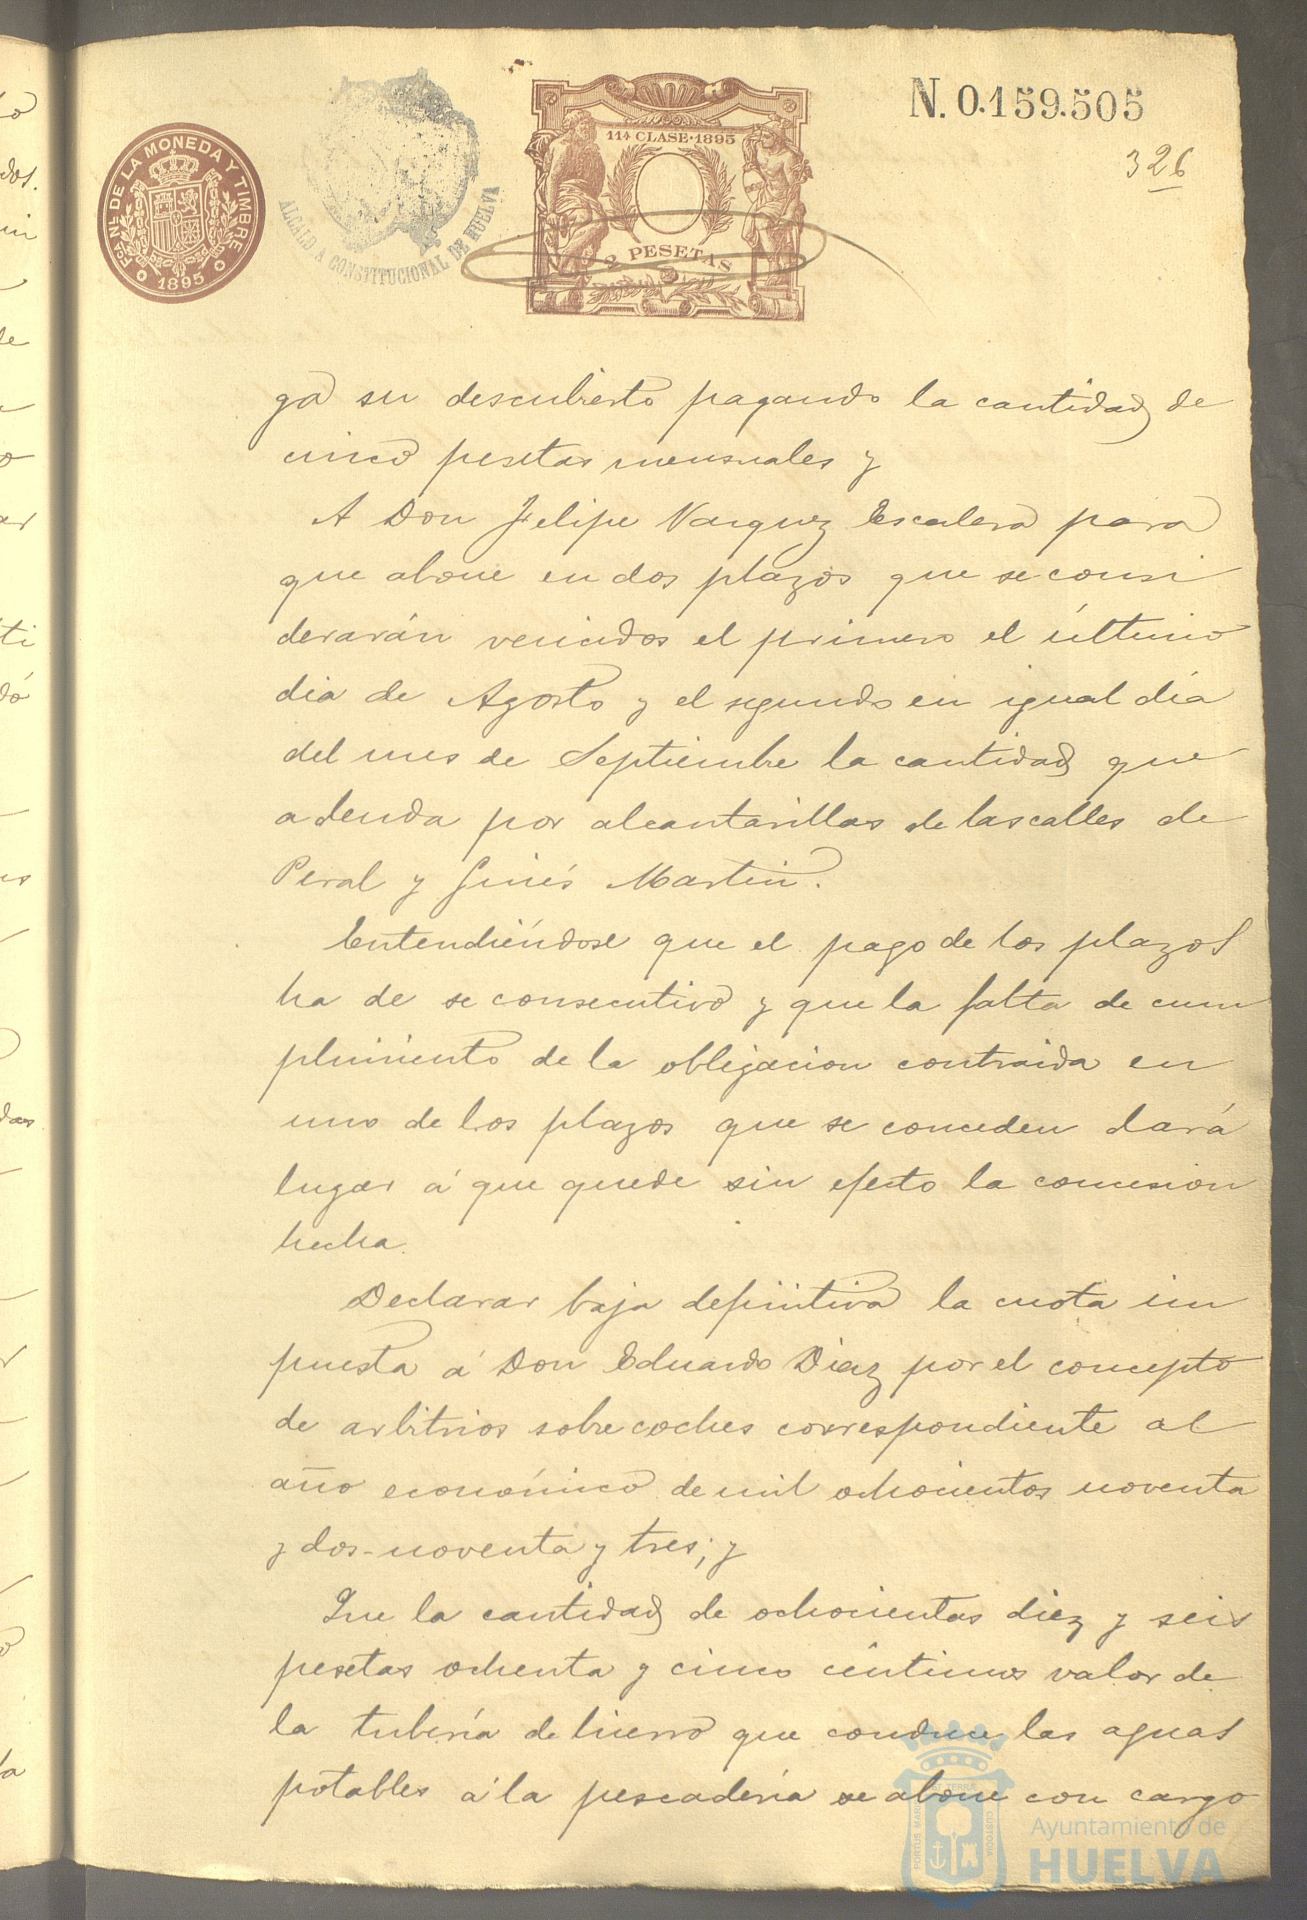 N. 0.159.505
326
Fca. Nl. DE LA MONEDA Y TIMBRE
1895
ALCALD A CONSTITUCIONAL DE HUELVA
11ª CLASE·1895
2 PESETAS
ga su descubierto pagando la cantidad de
cinco pesetas mensuales y
A Don Felipe Vazquez Escalera para
que abone en dos plazos que se consi
derarán vencidos el primero el último
dia de Agosto y el segundo en igual dia
del mes de Septiembre la cantidad que
adeuda por alcantarillas de las calles de
Peral y Ginés Martin.
Entendiéndose que el pago de los plazos
ha de se consecutivo y que la falta de cum
plimiento de la obligacion contraida en
uno de los plazos que se conceden dará
lugar á que quede sin efecto la concesion
hecha.
Declarar baja definitiva la cuota im
puesta á Don Eduardo Diaz por el concepto
de arbitrios sobre coches correspondiente al
año económico de mil ochocientos noventa
y dos-noventa y tres; y
Que la cantidad de ochocientas diez y seis
pesetas ochenta y cinco céntimos valor de
la tubería de hierro que conduce las aguas
potables á la pescadería se abone con cargo
PORTUS MARIS ET TERRAE CUSTODIA
Ayuntamiento de
HUELVA